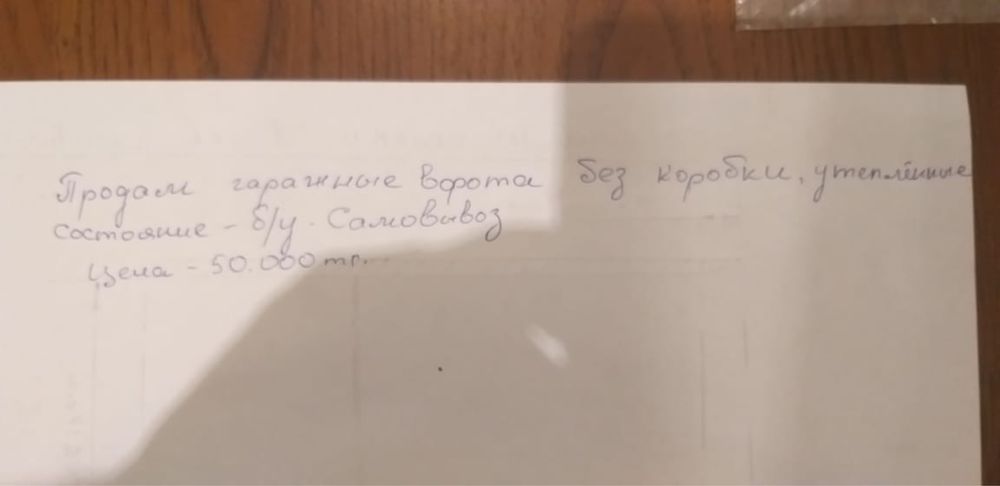 Продам гаражные ворота без коробки, утеплённые
состояние - б/у. Самовывоз
Цена - 50.000 тг.